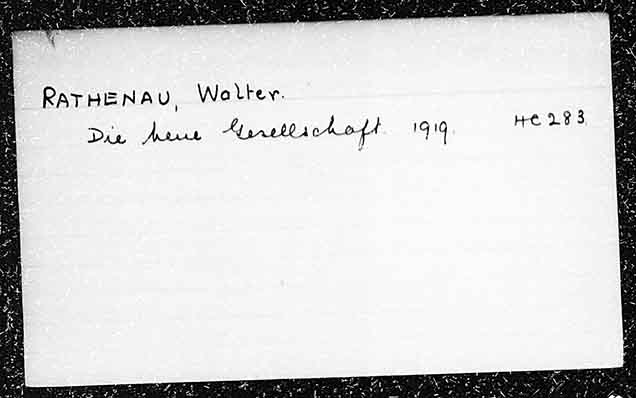 RATHENAU, Walter.
Die neue Gesellschaft. 1919. HC 283